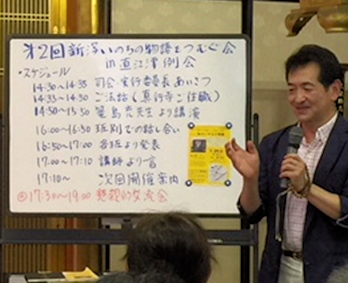 第2回新・深いのちの物語をつむぐ会
in 直江津例会
・スケジュール
14:30~14:35 司会 実行委員長あいさつ
14:35~14:50 ご法話(真行寺ご住職)
16:00~16:30 班別での話し合い
16:30~17:00 各班より発表
17:00~17:10 講師より一言
17:10~ 次回開催案内
17:30~19:00 懇親的交流会